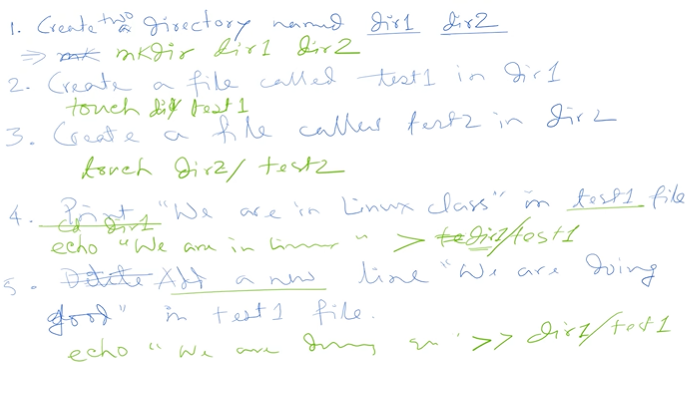 1. Create two directory named dir1 dir2
⇒ mkdir dir1 dir2
2. Create a file called test1 in dir1
touch dir1/test1
3. Create a file called test2 in dir2
touch dir2/test2
4. Print "We are in Linux class" in test1 file
cd dir1
echo "We are in Linux" > dir1/test1
5. Delete Add a new line "We are doing
good" in test1 file.
echo "We are doing" >> dir1/test1